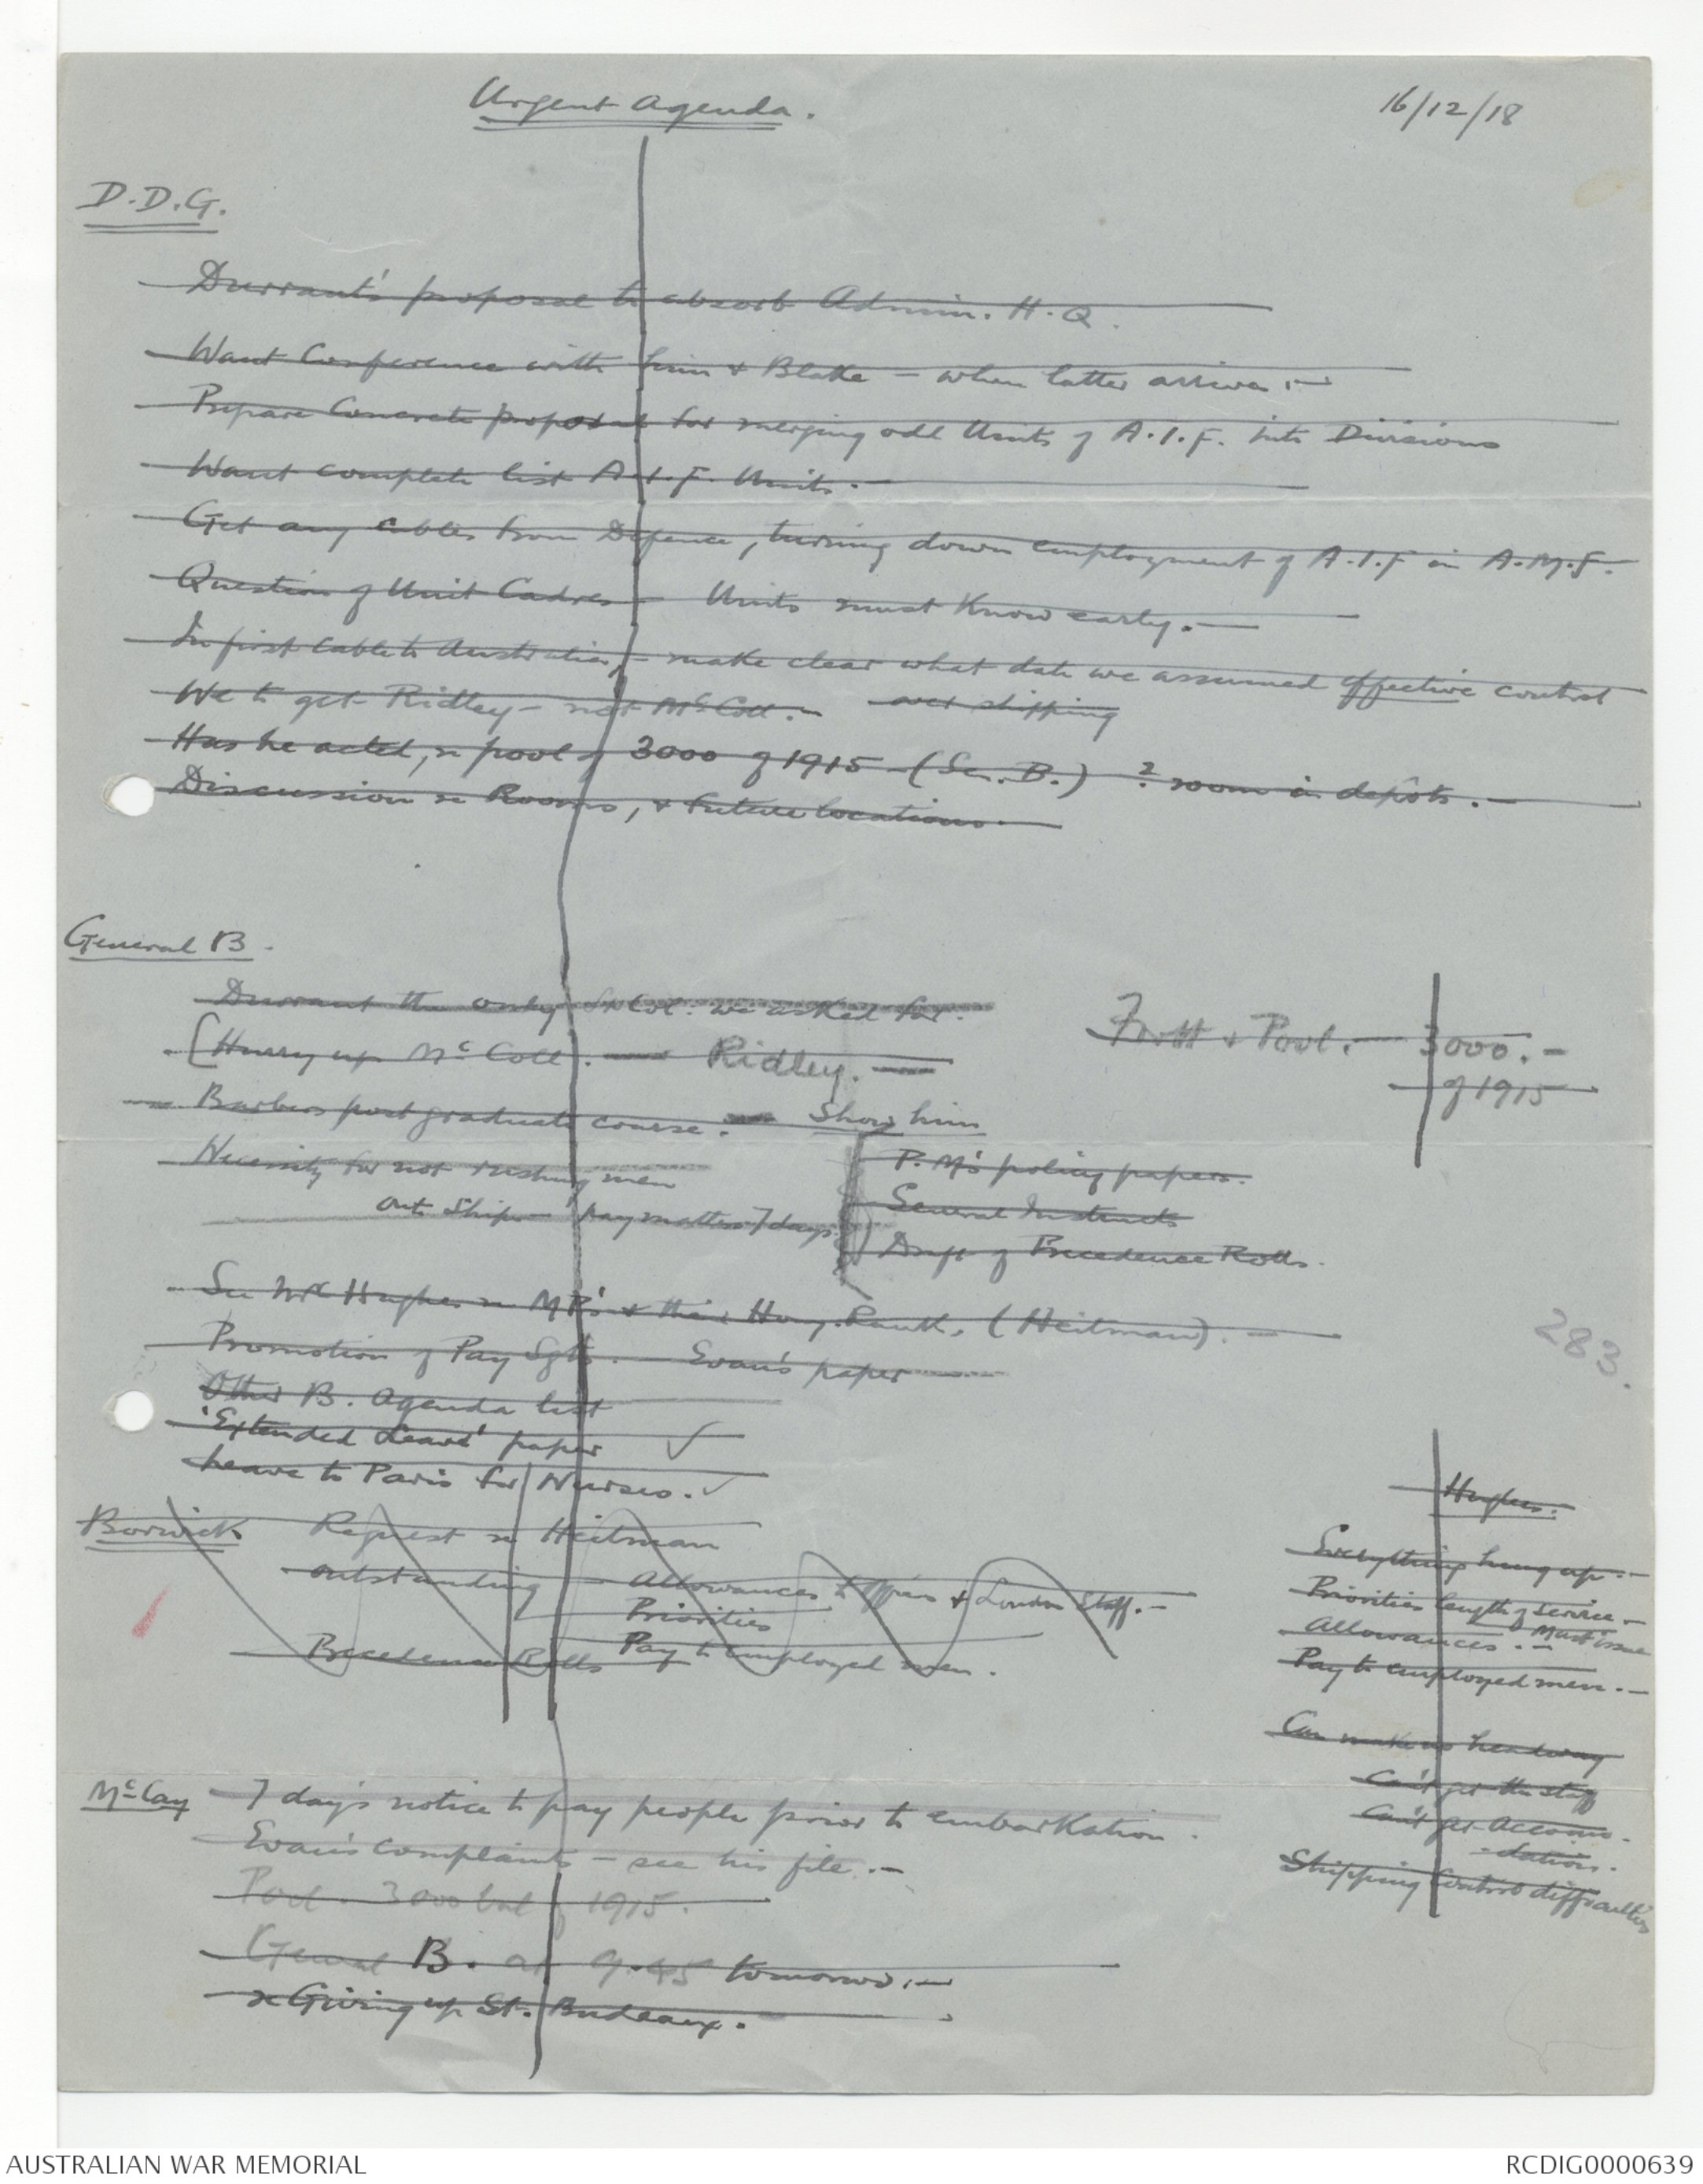 Urgent Agenda.
16/12/18
D.D.G.
Durrant's proposal to absorb Admin. H.Q.
Want Conference with him & Blake – when latter arrives.–
Prepare Concrete proposal for merging odd Units of A.I.F. into Divisions
Want complete list A.I.F. Units.–
Get any cables from Defence, turning down employment of A.I.F in A.M.F.
Question of Unit Cadres – Units must know early.–
In first cable to Australia, – make clear what date we assumed effective control
over shipping
We to get Ridley – not McColl.–
Has he acted, re pool of 3000 of 1915 – (Gen. B.) ? room in depôts.–
Discussion re Rooms, & future locations.–
General B.
Durrant the only Lt Col. we asked for.
(Hurry up McColl). – Ridley. –
Barbers post graduate course. – Show him
P.M's policy papers.
General Instructs
Draft of Precedence Rolls.
Necessity for not rushing men
onto Ships – pay matters 7 days.
& Pool.– 3000.–
of 1915
See Mr Hughes re MP's & their Hony. Rank. (Heitman).–
Promotion of Pay Sgts. – Evan's paper –
Other B. Agenda list
'Extended Leave' paper ✓
Leave to Paris for Nurses. ✓
283.
Borwick Request re Heitman
outstanding – Allowances to Officers & London Staff.–
Priorities
Pay to employed men.
Precedence Rolls
Hughes.
Everything hung up.–
Priorities length of service –
Must issue
Allowances.–
Pay to employed men.–
Can make no headway
Can't get the staff
Can't get Accomo-
-dation.
Shipping Control difficulties
McCay – 7 day's notice to pay people prior to embarkation.
Evan's complaints – see his file.–
Pool. 3000 bal of 1915.
General B. at 9.45 tomorrow.–
re Giving up St. Budeaux.
AUSTRALIAN WAR MEMORIAL
RCDIG0000639